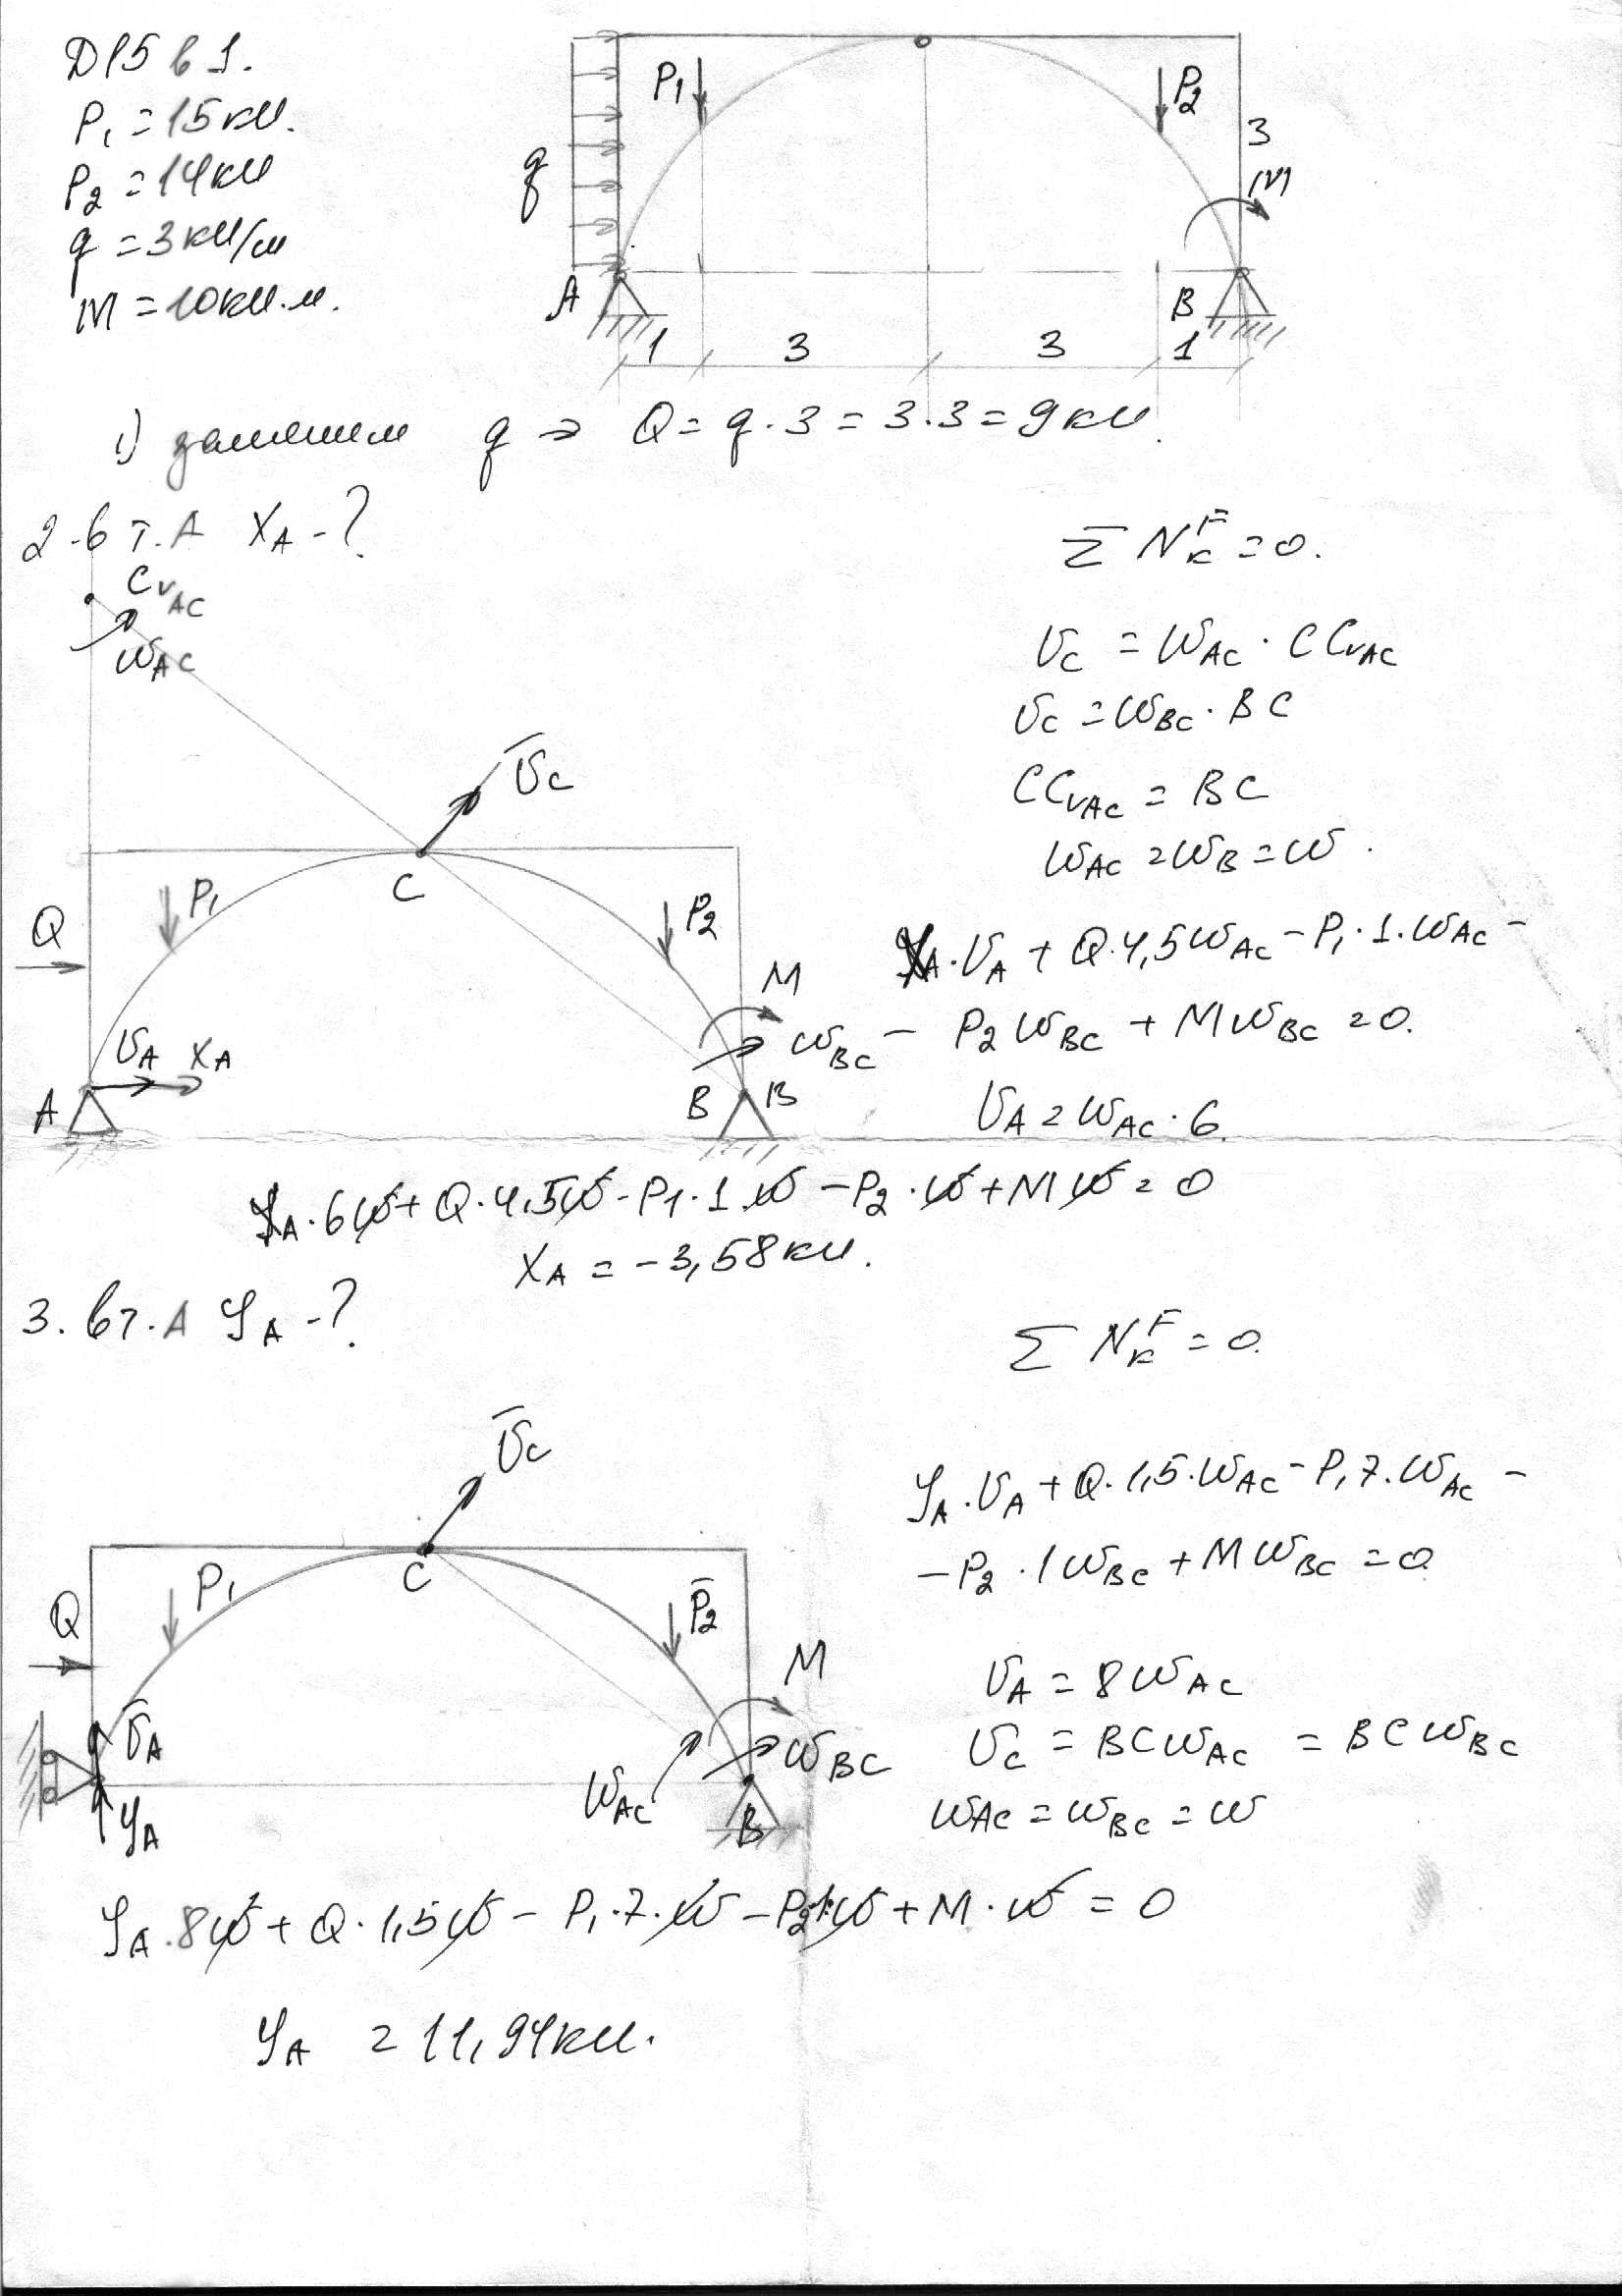 Д15 в 1.
P₁ = 15 кН.
P₂ = 14 кН
q = 3 кН/м
M = 10 кН·м.
P₁
P₂
q
3
M
A
B
1 3 3 1
1) заменим q ⇒ Q = q · 3 = 3 · 3 = 9 кН.
2. в т. A X_A - ?
Σ N_к^F = 0.
C_vAC
ω_AC
υ_C = ω_AC · CC_vAC
υ_C = ω_BC · BC
CC_vAC = BC
ω_AC = ω_B = ω.
υ̅_C
C
P₁
P₂
Q
M
ω_BC
υ_A X_A
A
B B
X_A · υ_A + Q · 4,5 ω_AC - P₁ · 1 · ω_AC -
- P₂ ω_BC + M ω_BC = 0.
υ_A = ω_AC · 6.
X_A · 6ω + Q · 4,5ω - P₁ · 1 · ω - P₂ · ω + Mω = 0
X_A = -3,58 кН.
3. в т. A Y_A - ?
Σ N_к^F = 0.
υ̅_C
C
P₁
P̅₂
Q
M
υ̅_A
Y_A
ω_AC
ω_BC
B
Y_A · υ_A + Q · 1,5 · ω_AC - P₁ 7 · ω_AC -
- P₂ · 1 ω_BC + M ω_BC = 0
υ_A = 8 ω_AC
υ_C = BC ω_AC = BC ω_BC
ω_AC = ω_BC = ω
Y_A · 8ω + Q · 1,5ω - P₁ · 7 · ω - P₂ · 1 · ω + M · ω = 0
Y_A = 11,94 кН.